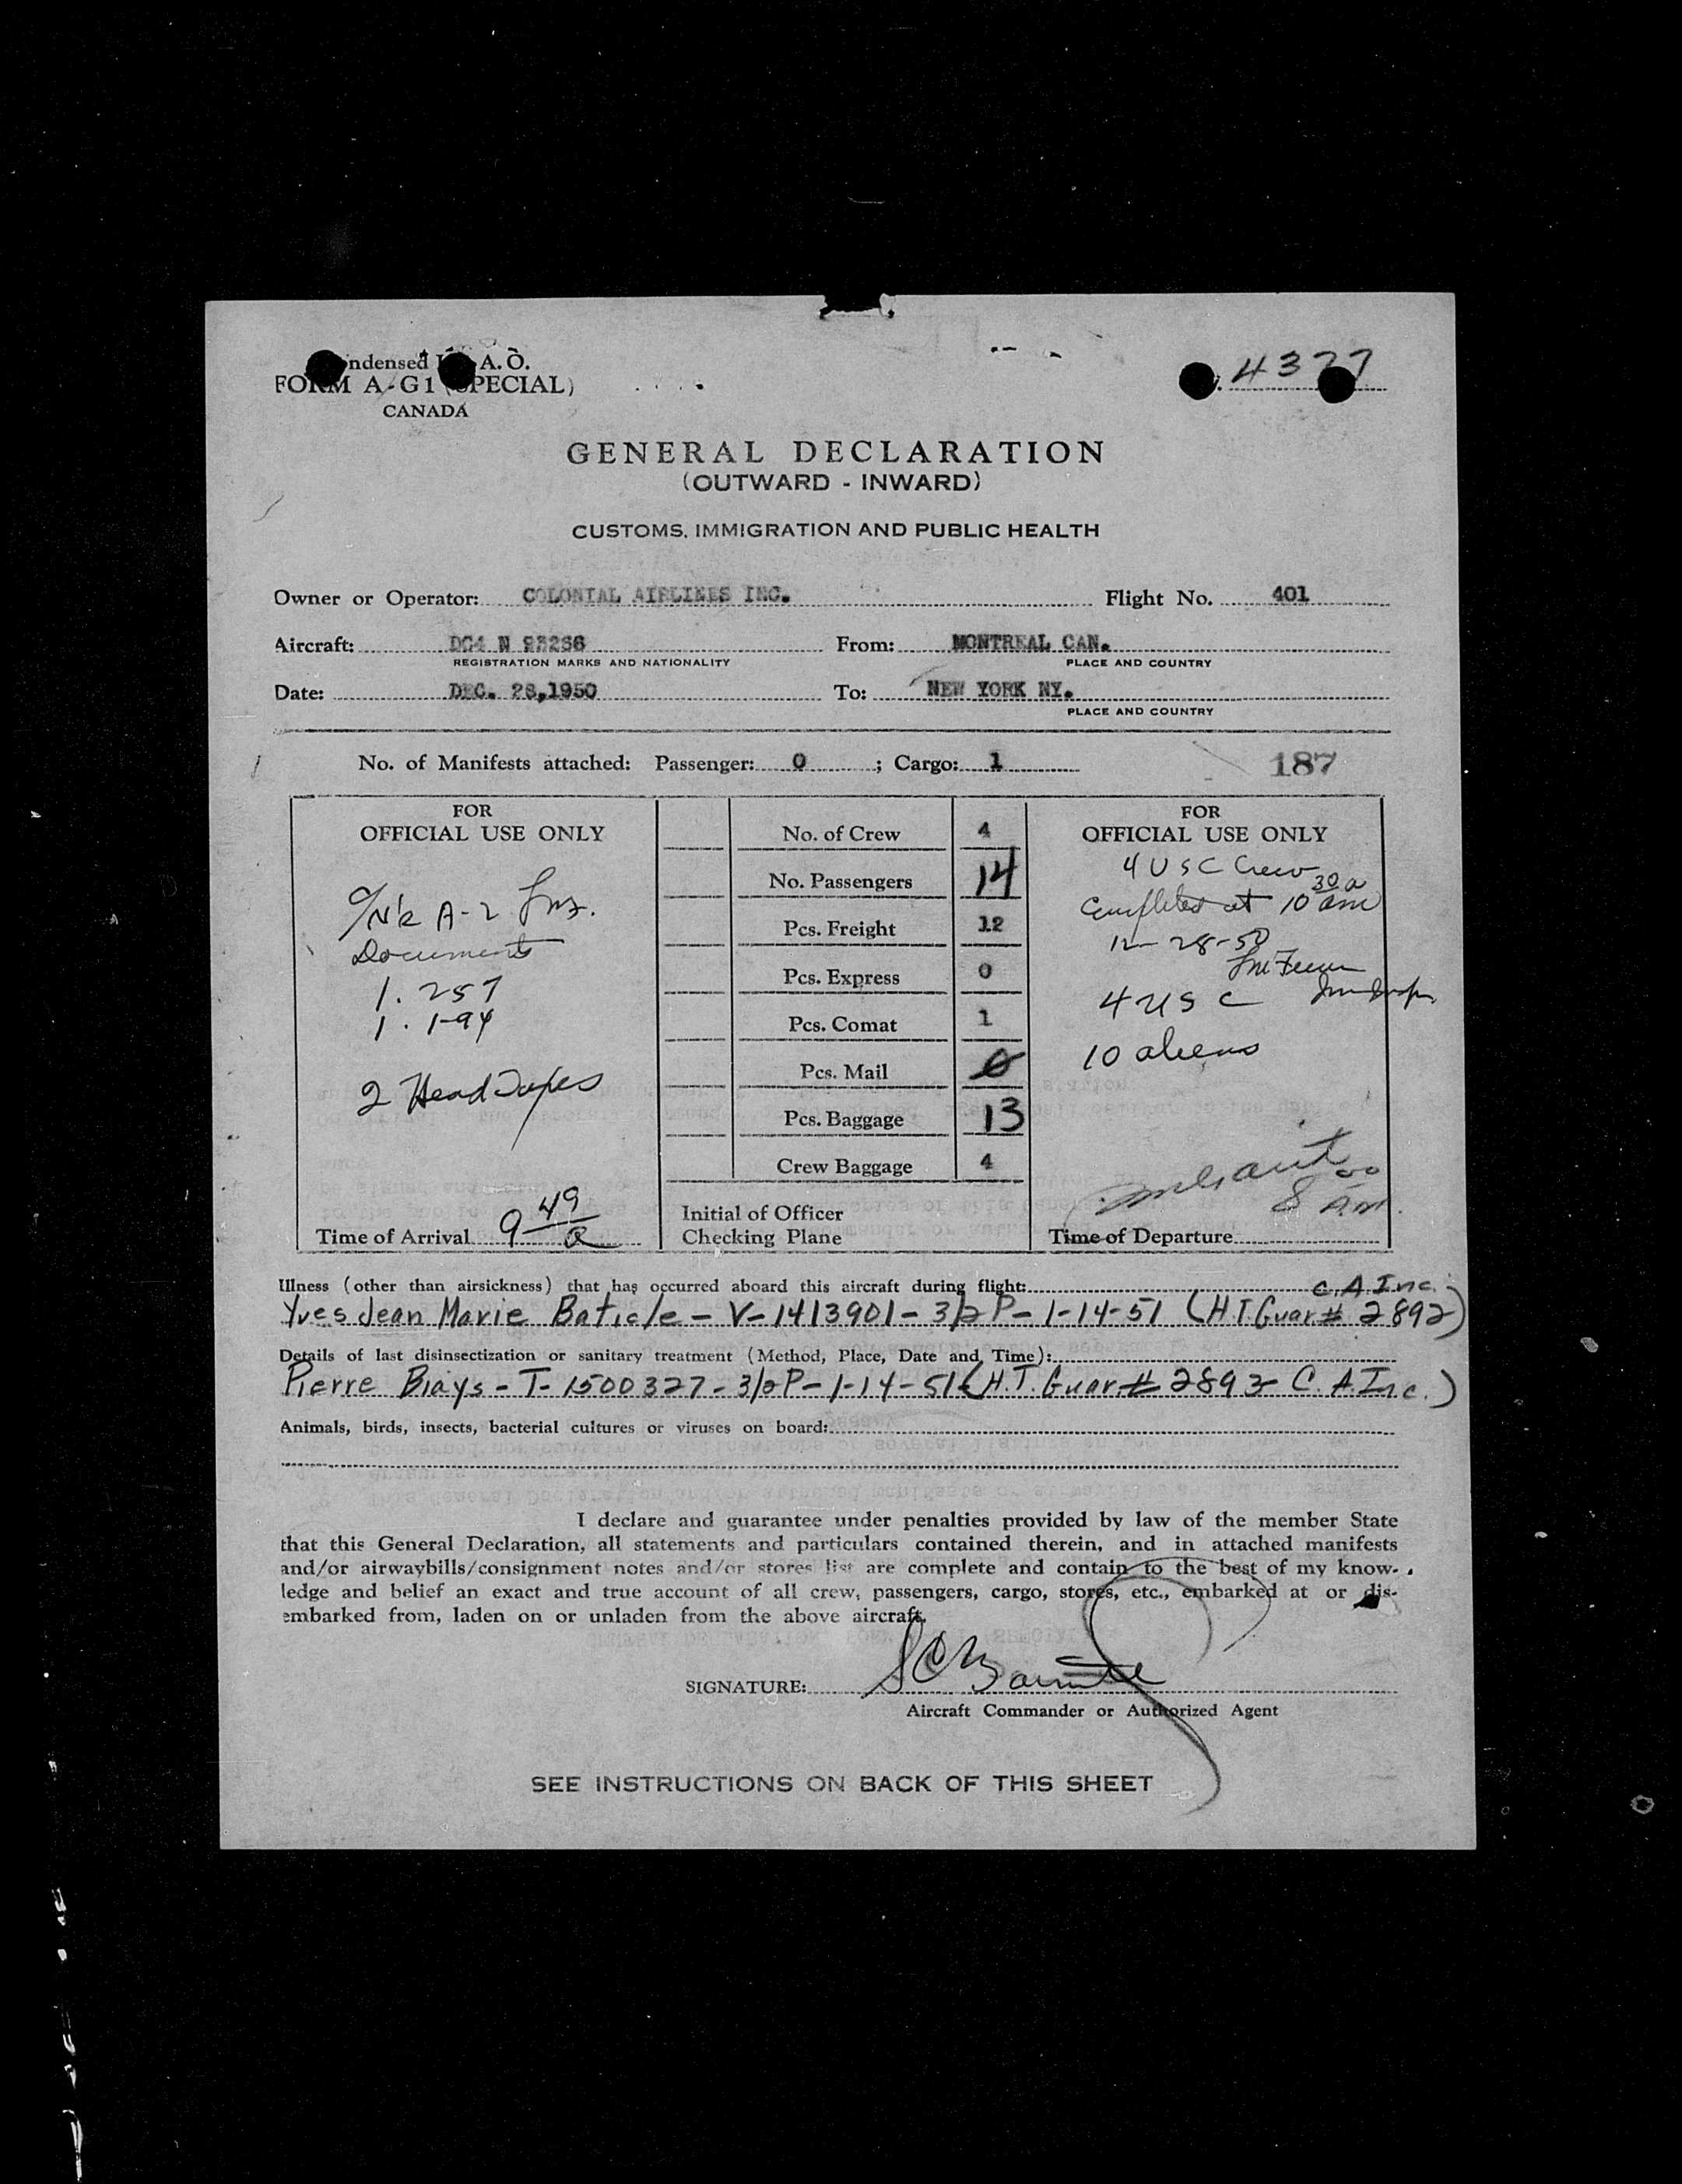 ndensed A. O.
4377
FORM A-G1 (SPECIAL)
CANADA
GENERAL DECLARATION
(OUTWARD - INWARD)
CUSTOMS, IMMIGRATION AND PUBLIC HEALTH
Owner or Operator: COLONIAL AIRLINES INC. Flight No. 401
Aircraft: DC4 N 93266 From: MONTREAL CAN.
REGISTRATION MARKS AND NATIONALITY PLACE AND COUNTRY
Date: DEC. 28,1950 To: NEW YORK NY.
PLACE AND COUNTRY
No. of Manifests attached: Passenger: 0 ; Cargo: 1 187
FOR
OFFICIAL USE ONLY
A-2
Documents
1. 257
1. 1-94
2 Head Tapes
Time of Arrival 9 49 a
No. of Crew 4
No. Passengers 14
Pcs. Freight 12
Pcs. Express 0
Pcs. Comat 1
Pcs. Mail 0
Pcs. Baggage 13
Crew Baggage 4
Initial of Officer
Checking Plane
FOR
OFFICIAL USE ONLY
4 USC Crew
Completed at 10 30 a am
12-28-50
4 USC
10 aliens
8 00 AM.
Time of Departure
Illness (other than airsickness) that has occurred aboard this aircraft during flight: C.A.Inc.
Yves Jean Marie Baticle - V-1413901 - 3/2 P - 1-14-51 (H.T. Guar # 2892)
Details of last disinsectization or sanitary treatment (Method, Place, Date and Time):
Pierre Biays - T-1500327 - 3/2 P - 1-14-51 (H.T. Guar # 2893 C.A.Inc.)
Animals, birds, insects, bacterial cultures or viruses on board:
I declare and guarantee under penalties provided by law of the member State
that this General Declaration, all statements and particulars contained therein, and in attached manifests
and/or airwaybills/consignment notes and/or stores list are complete and contain to the best of my know-
ledge and belief an exact and true account of all crew, passengers, cargo, stores, etc., embarked at or dis-
embarked from, laden on or unladen from the above aircraft.
SIGNATURE:
Aircraft Commander or Authorized Agent
SEE INSTRUCTIONS ON BACK OF THIS SHEET